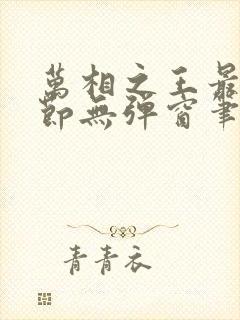 萬相之王最
節無彈窗筆
青青衣